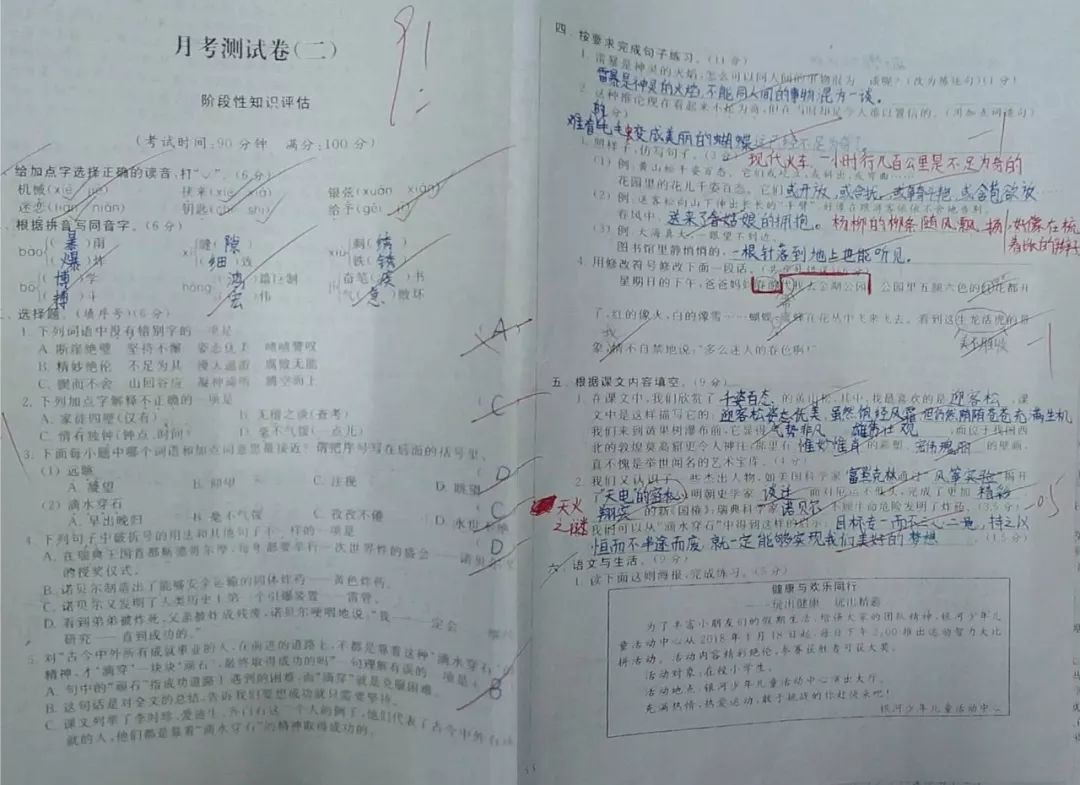 月考测试卷(二)
阶段性知识评估
(考试时间:90分钟 满分:100分)
给加点字选择正确的读音,打“√”。(6分)
机械(xiè jiè) 扶来 银弦(xuán xián)
迷恋(liàn niàn) 钥匙(chí shi) 给予(gěi jǐ)
根据拼音写同音字。(6分)
bào (暴)雨 xì (缝)隙 xiù 刺(绣)
(爆)炸 (细)致 铁(锈)
bó (博)学 hóng (鸿)篇巨制 jí 奋笔(疾)书
(搏)斗 (宏)伟 气(急)败坏
选择题。(填序号)(6分)
1. 下列词语中没有错别字的一项是 (A
A. 断崖绝壁 坚持不懈 姿态优美 啧啧赞叹
B. 精妙绝伦 不足为其 漫天遨游 腐败无能
C. 锲而不舍 山回谷应 凝神谛听 腾空而上
2. 下列加点字解释不正确的一项是 (C
A. 家徒四壁(仅有) B. 无稽之谈(查考)
C. 情有独钟(钟点,时间) D. 毫不气馁(一点儿)
3. 下面每小题中哪个词语和加点词意思最接近?请把序号写在后面的括号里。
(1) 远眺 (D
A. 凝望 B. 仰望 C. 注视 D. 眺望
(2) 滴水穿石 (C
A. 早出晚归 B. 毫不气馁 C. 孜孜不倦 D. 水
4. 下列句子中破折号的用法和其他句子不一样的一项是 (D
A. 在瑞典王国首都斯德哥尔摩,每年都要举行一次世界性的盛会——诺贝尔
的授奖仪式。
B. 诺贝尔制造出了能够安全运输的固体炸药——黄色炸药。
C. 诺贝尔又发明了人类历史上第一个引爆装置——雷管。
D. 看到弟弟被炸死,父亲被炸成残废,诺贝尔哽咽地说:“我——一定会
研究——直到成功的。”
5. 对“古今中外所有成就事业的人,在前进的道路上,不都是靠着这种‘滴水穿石’
精神,才‘滴穿’一块块‘顽石’,最终取得成功的吗”一句理解有误的一项是 (B
A. 句中的“顽石”指成功道路上遇到的困难,而“滴穿”就是克服困难。
B. 这句话是对全文的总结,告诉我们要想成功就只需要坚持。
C. 课文列举了李时珍、爱迪生、齐白石这三个人的例子,他们代表了古今中外有成
就的人,他们都是靠着“滴水穿石”的精神取得成功的。
四、按要求完成句子练习。(11分)
1. 雷暴是神灵的火焰,怎么可以同人间的事物混为一谈呢?(改为陈述句)(1分)
雷暴是神灵的火焰,不能同人间的事物混为一谈。
2. 这种推论现在看起来不足为奇,但在当时却是令人难以置信的。(用加点词造句)
难看毛毛虫变成美丽的蝴蝶
现代火车一小时行几百公里是不足为奇的
3. 照样子,仿写句子。(3分)
(1) 例:黄山松千姿百态。它们或屹立,或斜出,或弯曲……
花园里的花儿千姿百态。它们或开放,或含苞,或含苞欲放……
(2) 例:送客松向山下伸出长长的“手臂”,好像在跟游客依依不舍地告别。
春风中,送来了春姑娘的拥抱。杨柳的柳条随风飘扬,好像在梳
(3) 例:大海真大,一眼望不到边。
图书馆里静悄悄的,一根针落到地上也能听见。
4. 用修改符号修改下面一段话。
星期日的下午,爸爸妈妈 我去金湖公园。公园里五颜六色的红花都开
了,红的像火,白的像雪……蝴蝶、蜜蜂在花丛中飞来飞去。看到这生龙活虎的景
象,情不自禁地说:“多么迷人的春色啊!”
我
美不胜收
五、根据课文内容填空。(9分)
1. 在课文中,我们欣赏了千姿百态的黄山松,其中,我最喜欢的是迎客松,课
文中是这样描写它的:迎客松姿态优美,虽然饱经风霜,但仍然郁郁苍苍,充满生机。
我们来到黄果树瀑布前,它显得气势非凡、雄奇壮观,而位于我国西
北的敦煌莫高窟更令人神往,那里有惟妙惟肖的彩塑、宏伟瑰丽的壁画,
真不愧是举世闻名的艺术宝库。(4分)
2. 我们又认识了一些杰出人物,如美国科学家富兰克林通过“风筝实验”揭开
了“天电”的密秘;明朝史学家谈迁面对厄运不低头,完成了更加精彩、
翔实的新《国榷》;瑞典科学家诺贝尔不顾生命危险发明了炸药。(3.5分)
天火
之谜
0.5
我们可以从“滴水穿石”中得到这样的启示:目标专一而不三心二意,持之以
恒而不半途而废,就一定能够实现我们美好的梦想。(1.5分)
六、语文与生活。(9分)
1. 读下面这则海报,完成练习。(5分)
健康与欢乐同行
——玩出健康 玩出精彩
为了丰富小朋友们的假期生活,增强大家的团队精神,银河少年儿
童活动中心从2018年1月18日起,每日下午2:00推出运动智力大比
拼活动。活动内容精彩绝伦,参赛获胜者可获大奖。
活动对象:在校小学生。
活动地点:银河少年儿童活动中心演出大厅。
充满热情、热爱运动、敢于挑战的你赶快来吧!
银河少年儿童活动中心